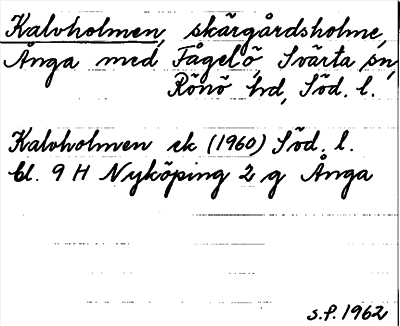 Kalvholmen, skärgårdsholme,
Ånga med Fågelö, Svärta sn,
Rönö hd, Söd. l.
Kalvholmen ek (1960) Söd. l.
bl. 9 H Nyköping 2 g Ånga
s.f. 1962